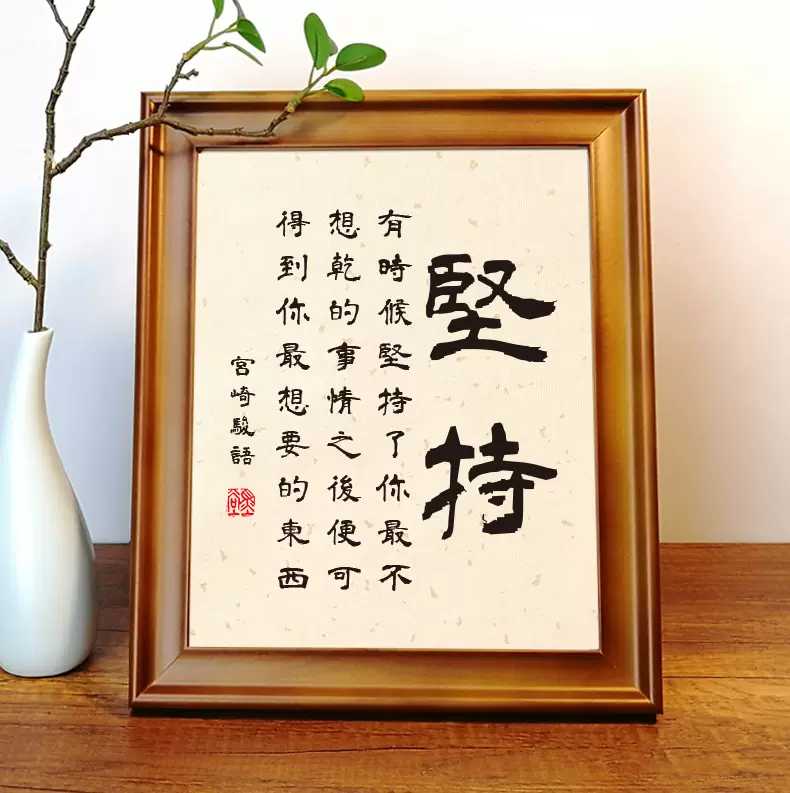 堅持
有時候堅持了你最不
想乾的事情之後便可
得到你最想要的東西
宮崎駿語